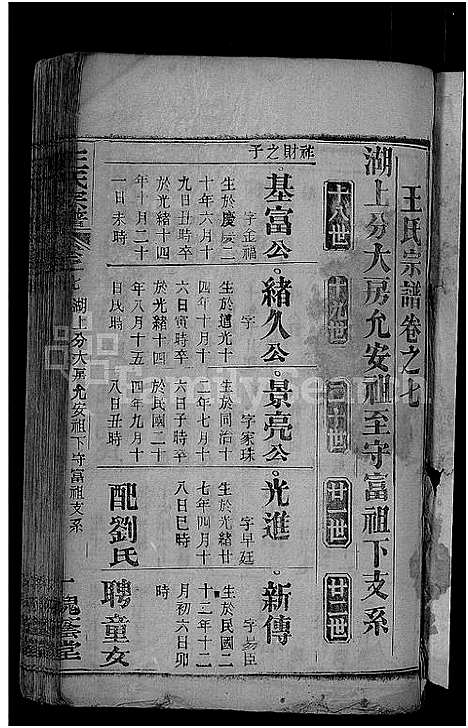 王氏宗譜卷之七
湖上分大房允安祖至守富祖下支系
十八世
十九世
二十世
廿一世
廿二世
祥財之子
基富公
字金福
生於慶二
十年六月十
九日丑時卒
於光緒十四
年十月二十
一日未時
緒久公
字
生於道光十
四年十月十
六日寅時卒
於光緒十四
年八月十五
日辰時
景亮公
字家珠
生於同治十
一年七月十
六日子時卒
於民國二十
四年九月十
八日丑時
光進
字早廷
生於光緒廿
七年四月十
八日巳時
配劉氏
新傳
字易臣
生於民國二
十二年十二
月初六日卯
時
聘童女
王氏宗譜
卷之七
湖上分大房允安祖下守富祖支系
一槐蔭堂
FamilySearch